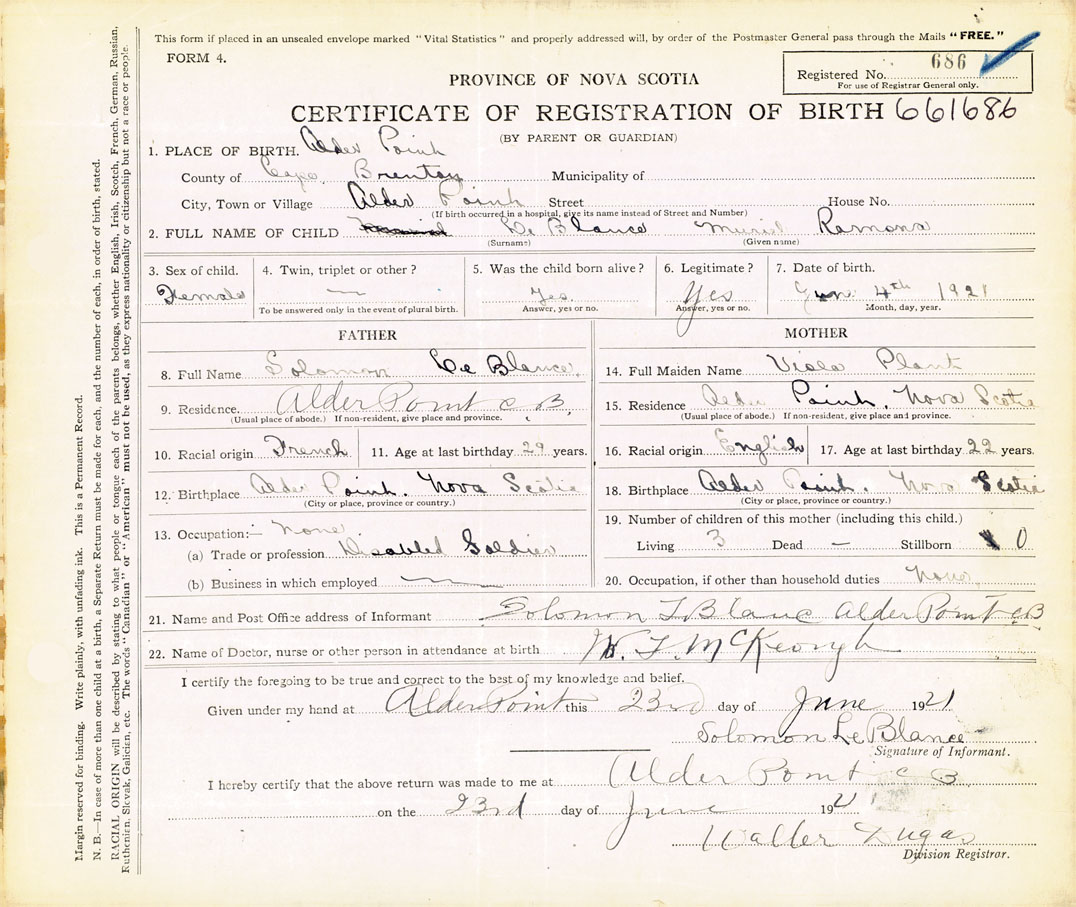 This form if placed in an unsealed envelope marked "Vital Statistics" and properly addressed will, by order of the Postmaster General pass through the Mails "FREE."
FORM 4.
686
Registered No.
For use of Registrar General only.
PROVINCE OF NOVA SCOTIA
CERTIFICATE OF REGISTRATION OF BIRTH 661686
(BY PARENT OR GUARDIAN)
1. PLACE OF BIRTH. Alder Point
County of Cape Brenton Municipality of
City, Town or Village Alder Point Street House No.
(If birth occurred in a hospital, give its name instead of Street and Number)
2. FULL NAME OF CHILD Le Blance Muriel Ramona
(Surname) (Given name)
3. Sex of child. 4. Twin, triplet or other? 5. Was the child born alive? 6. Legitimate? 7. Date of birth.
Female — Yes Yes Jun 4th 1921
To be answered only in the event of plural birth. Answer, yes or no. Answer, yes or no. Month, day, year.
FATHER
8. Full Name Solomon Le Blance.
9. Residence. Alder Point C B,
(Usual place of abode.) If non-resident, give place and province.
10. Racial origin French 11. Age at last birthday 29 years.
12. Birthplace Alder Point. Nova Scotia
(City or place, province or country.)
13. Occupation:— None
(a) Trade or profession Disabled Soldier
(b) Business in which employed —
MOTHER
14. Full Maiden Name Viola Plant
15. Residence Alder Point, Nova Scotia
(Usual place of abode.) If non-resident, give place and province.
16. Racial origin English 17. Age at last birthday 22 years.
18. Birthplace Alder Point. Nova Scotia
(City or place, province or country.)
19. Number of children of this mother (including this child.)
Living 3 Dead — Stillborn 0
20. Occupation, if other than household duties None
21. Name and Post Office address of Informant Solomon LBlanc Alder Point CB
22. Name of Doctor, nurse or other person in attendance at birth W. L. McKeough
I certify the foregoing to be true and correct to the best of my knowledge and belief.
Given under my hand at Alder Point this 23rd day of June 1921
Solomon Le Blance
Signature of Informant.
I hereby certify that the above return was made to me at Alder Point C B
on the 23rd day of June 1921
Walter Dugas
Division Registrar.
Margin reserved for binding. Write plainly, with unfading ink. This is a Permanent Record.
N. B.—In case of more than one child at a birth, a Separate Return must be made for each, and the number of each, in order of birth, stated.
RACIAL ORIGIN will be described by stating to what people or tongue each of the parents belongs, whether English, Irish, Scotch, French, German, Russian,
Ruthenian, Slovak, Galician, etc. The words "Canadian" or "American" must not be used, as they express nationality or citizenship but not a race or people.